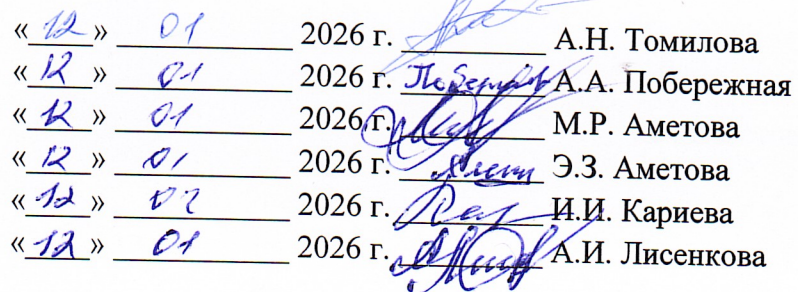 «12» 01 2026 г. А.Н. Томилова
«12» 01 2026 г. А.А. Побережная
«12» 01 2026 г. М.Р. Аметова
«12» 01 2026 г. Э.З. Аметова
«12» 01 2026 г. И.И. Кариева
«12» 01 2026 г. А.И. Лисенкова